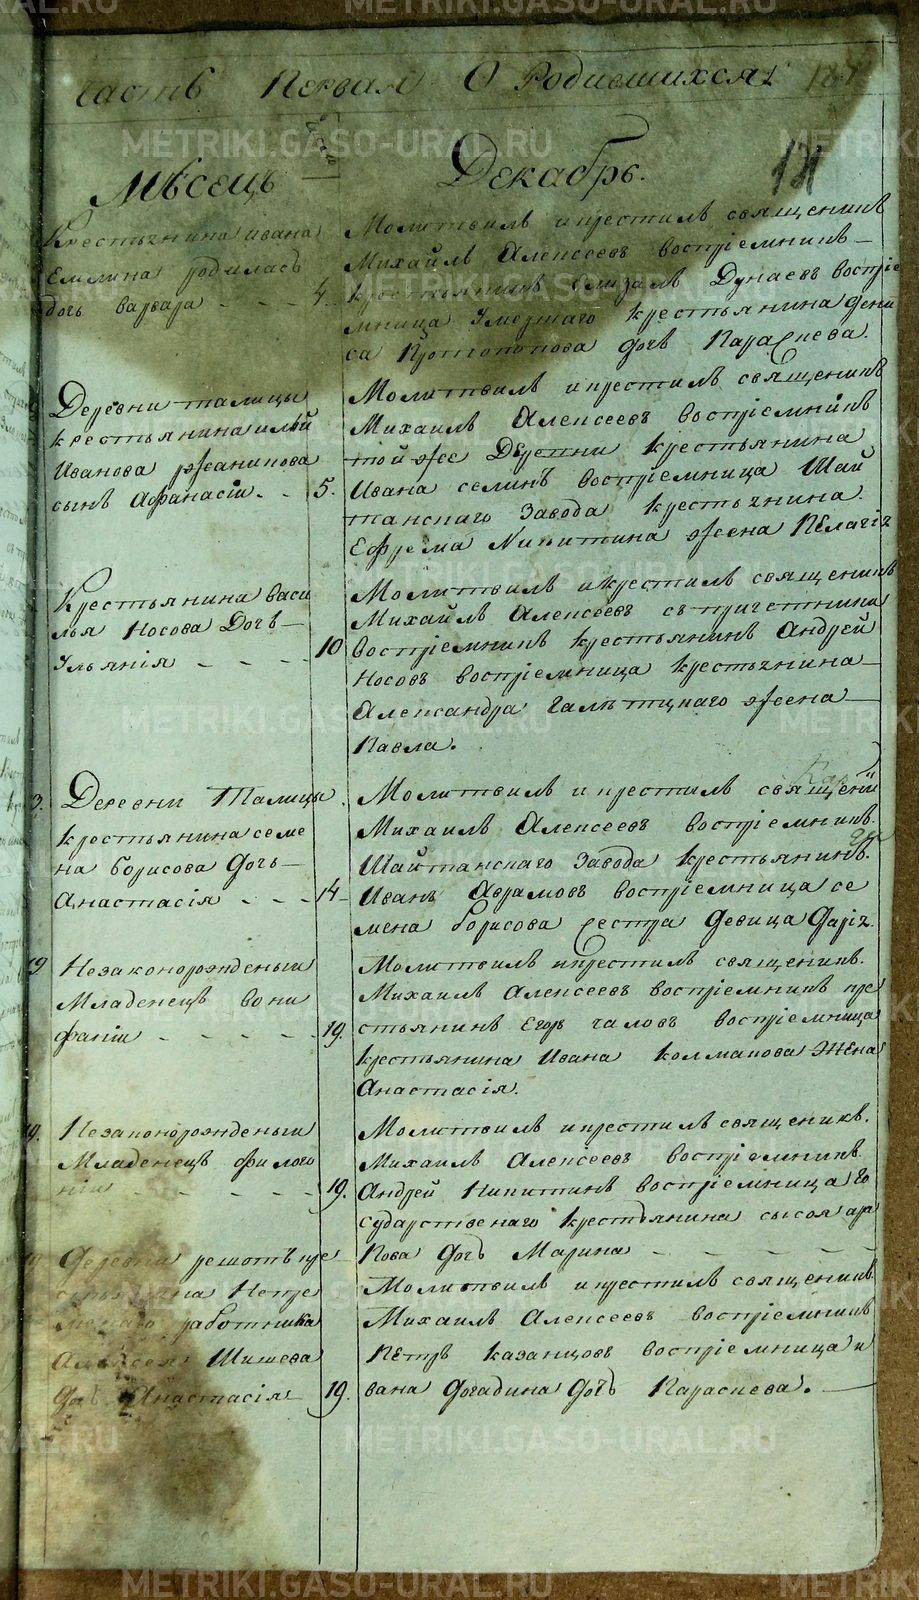 Часть Первая О Родившихся
Мѣсецъ
Декабрь.
Крестьянина ивана
Емелина родилась
дочь варвара - - - 4.
Молитвилъ икрестилъ священикъ
Михайлъ Алексеевъ воспріемникъ
крестьянинъ Елизаръ Дунаевъ воспріе
мница Умершаго крестьянина Дени
са Протопопова дочь Параскева.
Деревни талицы
крестьянина ильи
Иванова
сынъ Афанасіи. - 5.
Молитвилъ икрестилъ священикъ
Михаилъ Алексеевъ воспріемникъ
той же Деревни крестьянина
Ивана семинъ воспріемница Шай
танскаго Завода крестьянина
Ефрема Никитина жена Пелагія
Крестьянина васи
лья Носова Дочь
Ульянія - - - - 10
Молитвилъ икрестилъ священикъ
Михайлъ Алексеевъ съ причетники
воспріемникъ крестьянинъ Андрей
Носовъ воспріемница крестьянина
Александра жена
Павла.
Деревни Талицы
крестьянина семе
на борисова дочь
Анастасія - - - 14
Молитвилъ и крестилъ священи
Михаилъ Алексеевъ воспріемникъ
Шайтанскаго Завода крестьянинъ.
Иванъ Аврамовъ воспріемница се
мена борисова сестра девица Дарія.
19 Незаконорожденыи
Младенецъ вони
фатіи - - - - - 19.
Молитвилъ икрестилъ священикъ.
Михаилъ Алексеевъ воспріемникъ кре
стьянинъ Егоръ чаловъ воспріемница
крестьянина Ивана колмакова жена
Анастасія.
19. Незаконорожденыи
Младенецъ филого
ніи - - - - - 19.
Молитвилъ икрестилъ священикъ.
Михаилъ Алексеевъ воспріемникъ
Андрей Никитинъ воспріемница Го
сударственаго крестьянина сысоя ара
Кова дочь Марина - - - - -
деревни решотъ кре
стьянина Непре
менаго работника
Алексея Шишева
дочь Анастасія 19.
Молитвилъ икрестилъ священикъ
Михаилъ Алексеевъ воспріемникъ
Петръ казанцовъ воспріемница и
вана догадина дочь Параскева.
METRIKI.GASO-URAL.RU